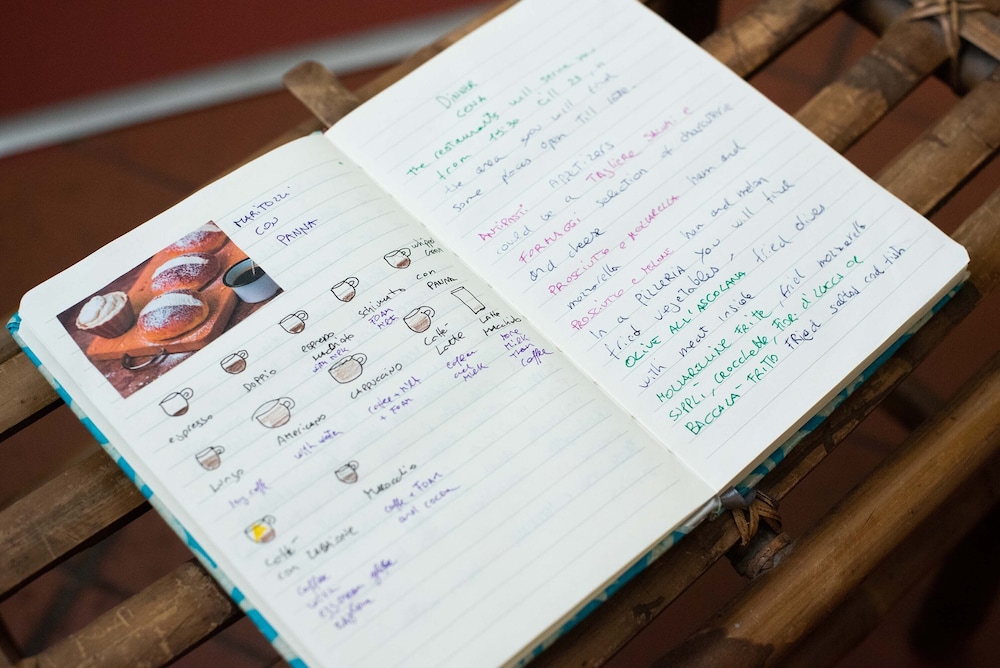 MARITOZZI
CON
PANNA
espresso
DOPPIO
espresso
macchiato
with milk
schiumato
FOAM
con
PANNA
Lungo
AMERICANO
with water
CAPPUCCINO
coffee + milk
+ FOAM
Caffè
Latte
coffee
and
milk
Latte
Macchiato
more
milk
than
coffee
coffe + FOAM
and cocoa
Caffè
con ZABAIONE
Coffee
with
DINNER
CENA
the restaurants will serve you
from 19.30 till 23, in
the area you will find
some places open till late.
ANTIPASTI APPETIZERS
could be a TAGLIERE SALUMI e
FORMAGGI selection of charcuterie
and cheese
PROSCIUTTO e MOZZARELLA ham and
mozzarella
PROSCIUTTO e MELONE ham and melon
In a PIZZERIA you will find
fried vegetables, fried olives
with meat inside OLIVE ALL'ASCOLANA
MOZZARELLINE FRITTE fried mozzarella
SUPPLI - CROCCHETTE, FIORI d'ZUCCA or
BACCALA - FRITTO FRIED salted cod fish